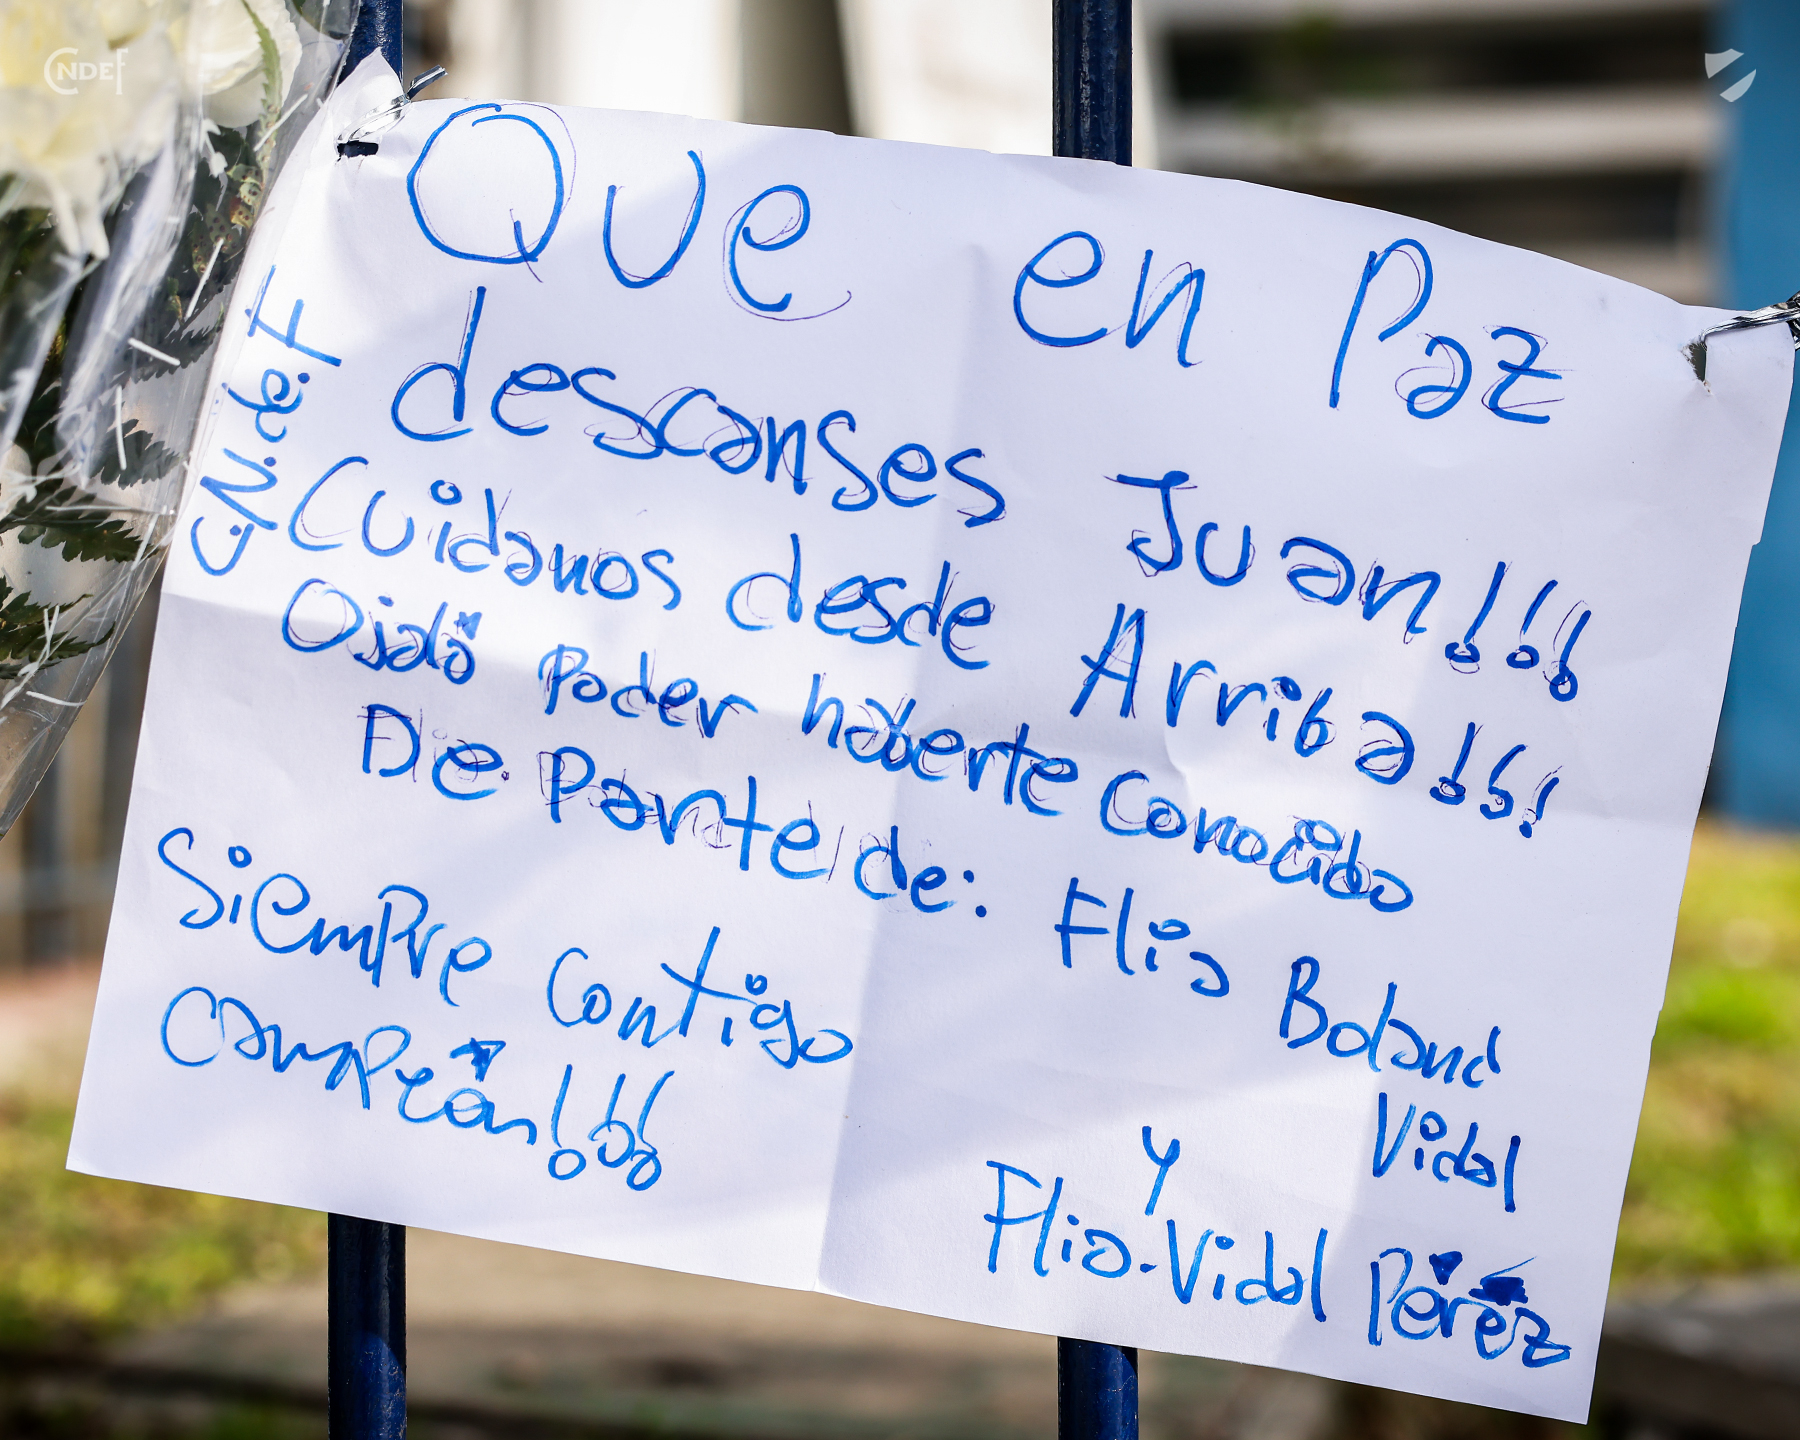 CNDEF
Que en Paz
descanses Juan!!!
Cuidanos desde Arriba!!!
Ojalá Poder haberte Conocido
De Parte de: Flia Boland
Vidal
y
Flia. Vidal Pérez
Siempre Contigo
Campeón!!!
C.N.de.F